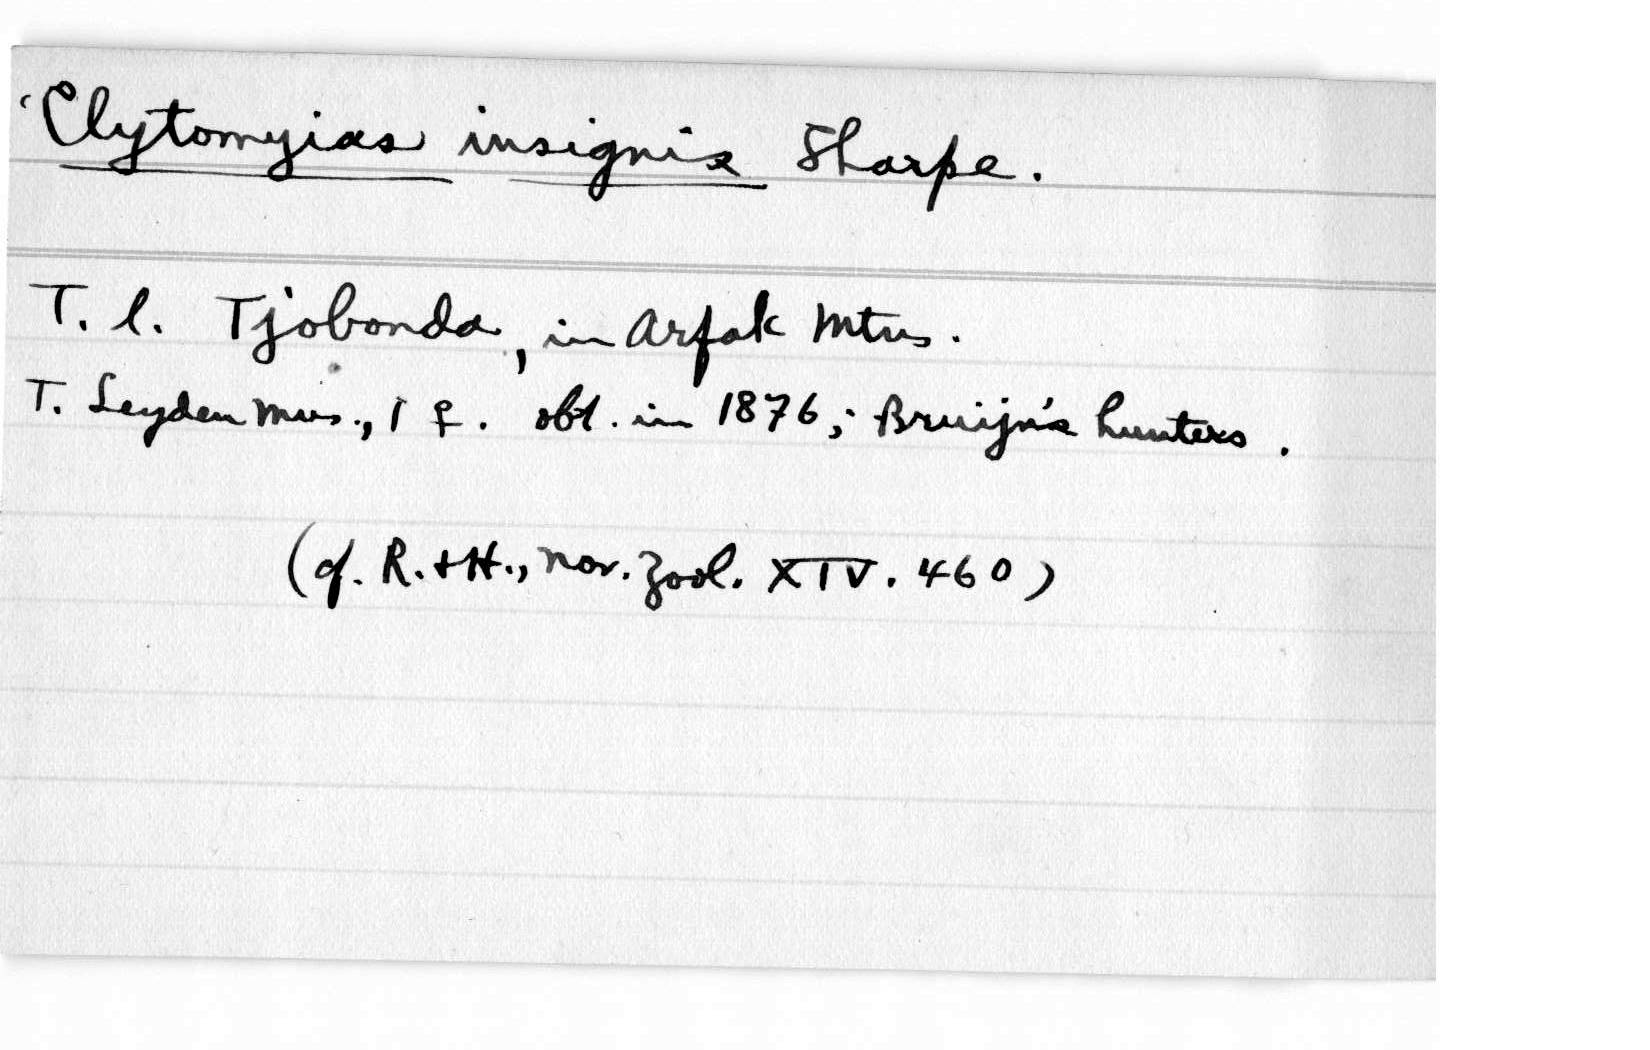 Clytomyias insignis Sharpe.
T. l. Tjobonda, in Arfak Mtns.
T. Leyden Mus., 1 ♀. obt. in 1876; Bruijn's hunters.
(cf. R. + H., Nov. Zool. XIV. 460)